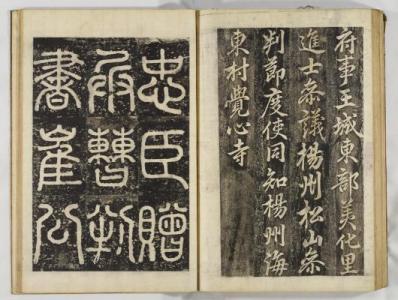 府事王城東部美化里
進士參議楊州松山參
判節度使同知楊州海
東村覺心寺
忠臣贈
兵曹判
書崔公